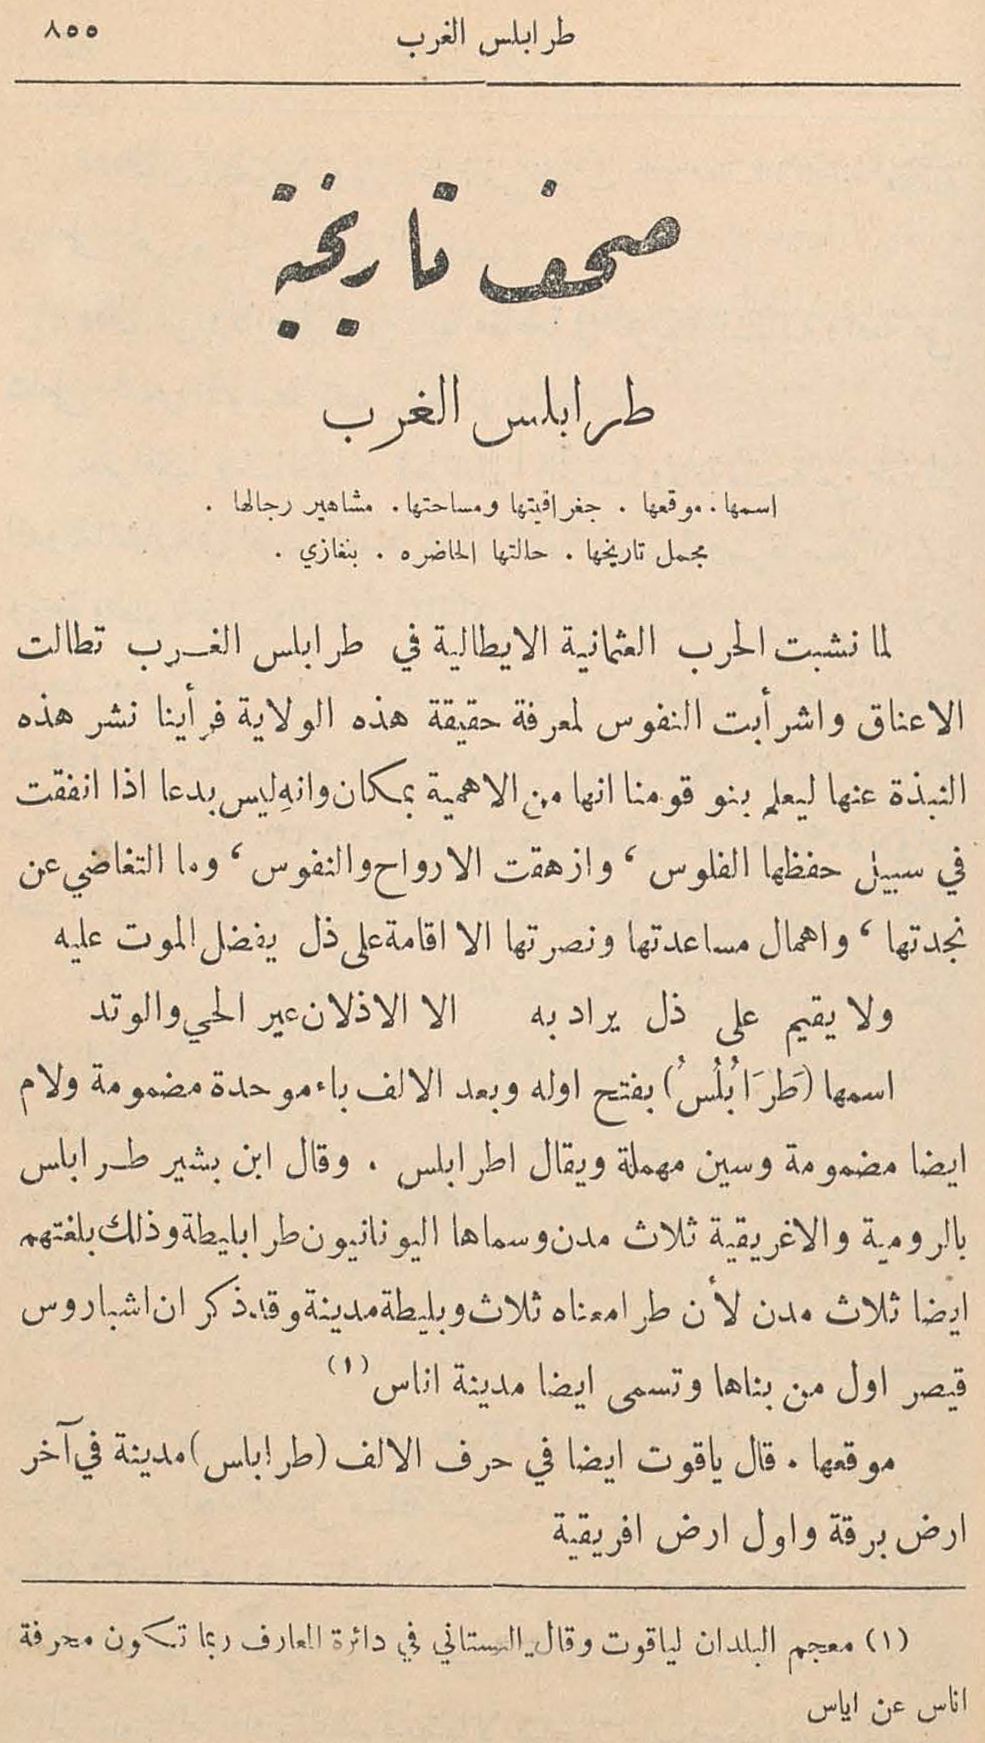 طرابلس الغرب ٨٥٥
صحف تاريخية
طرابلس الغرب
اسمها . موقعها . جغرافيتها ومساحتها . مشاهير رجالها .
مجمل تاريخها . حالتها الحاضره . بنغازي .
لما نشبت الحرب العثمانية الايطالية في طرابلس الغرب تطالت
الاعناق واشرأبت النفوس لمعرفة حقيقة هذه الولاية فرأينا نشر هذه
النبذة عنها ليعلم بنو قومنا انها من الاهمية بمكان وانه ليس بدعا اذا انفقت
في سبيل حفظها الفلوس ، وازهقت الارواح والنفوس ، وما التغاضي عن
نجدتها ، واهمال مساعدتها ونصرتها الا اقامة على ذل يفضل الموت عليه
ولا يقيم على ذل يراد به الا الاذلان عير الحي والوتد
اسمها (طَرَابُلُسُ) بفتح اوله وبعد الالف باء موحدة مضمومة ولام
ايضا مضمومة وسين مهملة ويقال اطرابلس . وقال ابن بشير طرابلس
بالرومية والاغريقية ثلاث مدن وسماها اليونانيون طرابليطة وذلك بلغتهم
ايضا ثلاث مدن لأن طرا معناه ثلاث وبليطة مدينة وقد ذكر ان اشباروس
قيصر اول من بناها وتسمى ايضا مدينة اناس (١)
موقعها . قال ياقوت ايضا في حرف الالف (طرابلس) مدينة في آخر
ارض برقة واول ارض افريقية
(١) معجم البلدان لياقوت وقال البستاني في دائرة المعارف ربما تكون محرفة
اناس عن اياس